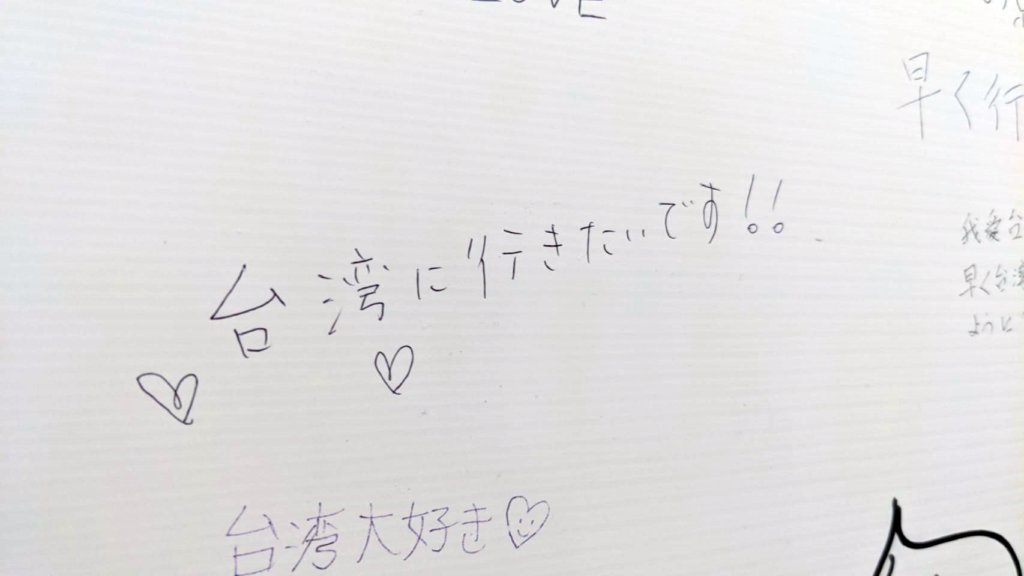 LOVE
早く行
台湾に行きたいです!!
我愛台
早く台湾
ように
台湾大好き